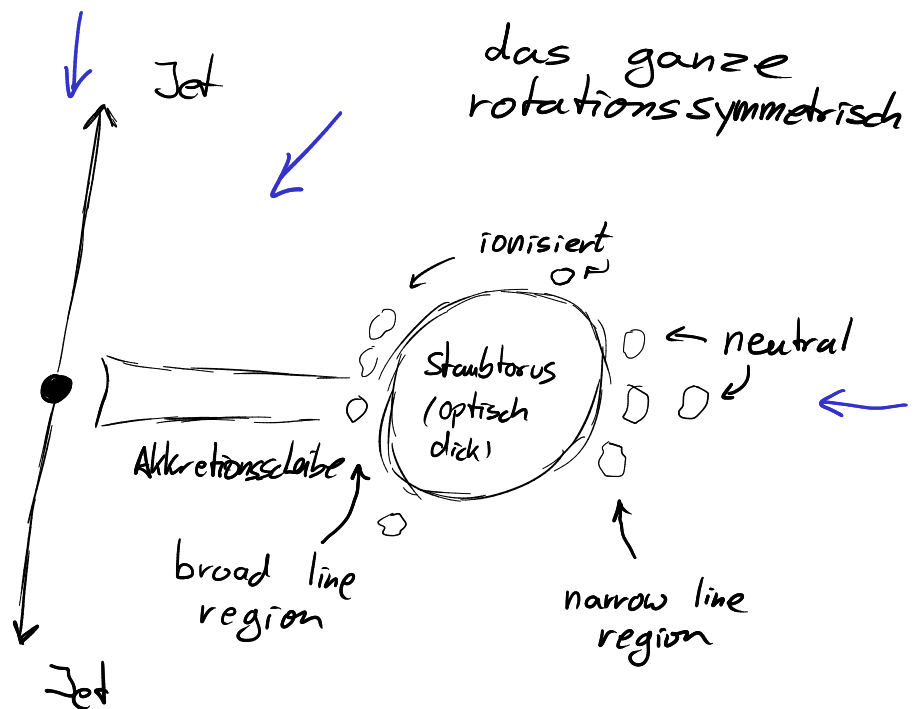 Jet
das ganze
rotationssymmetrisch
ionisiert
neutral
Staubtorus
(optisch
dick)
Akkretionsscheibe
broad line
region
narrow line
region
Jet